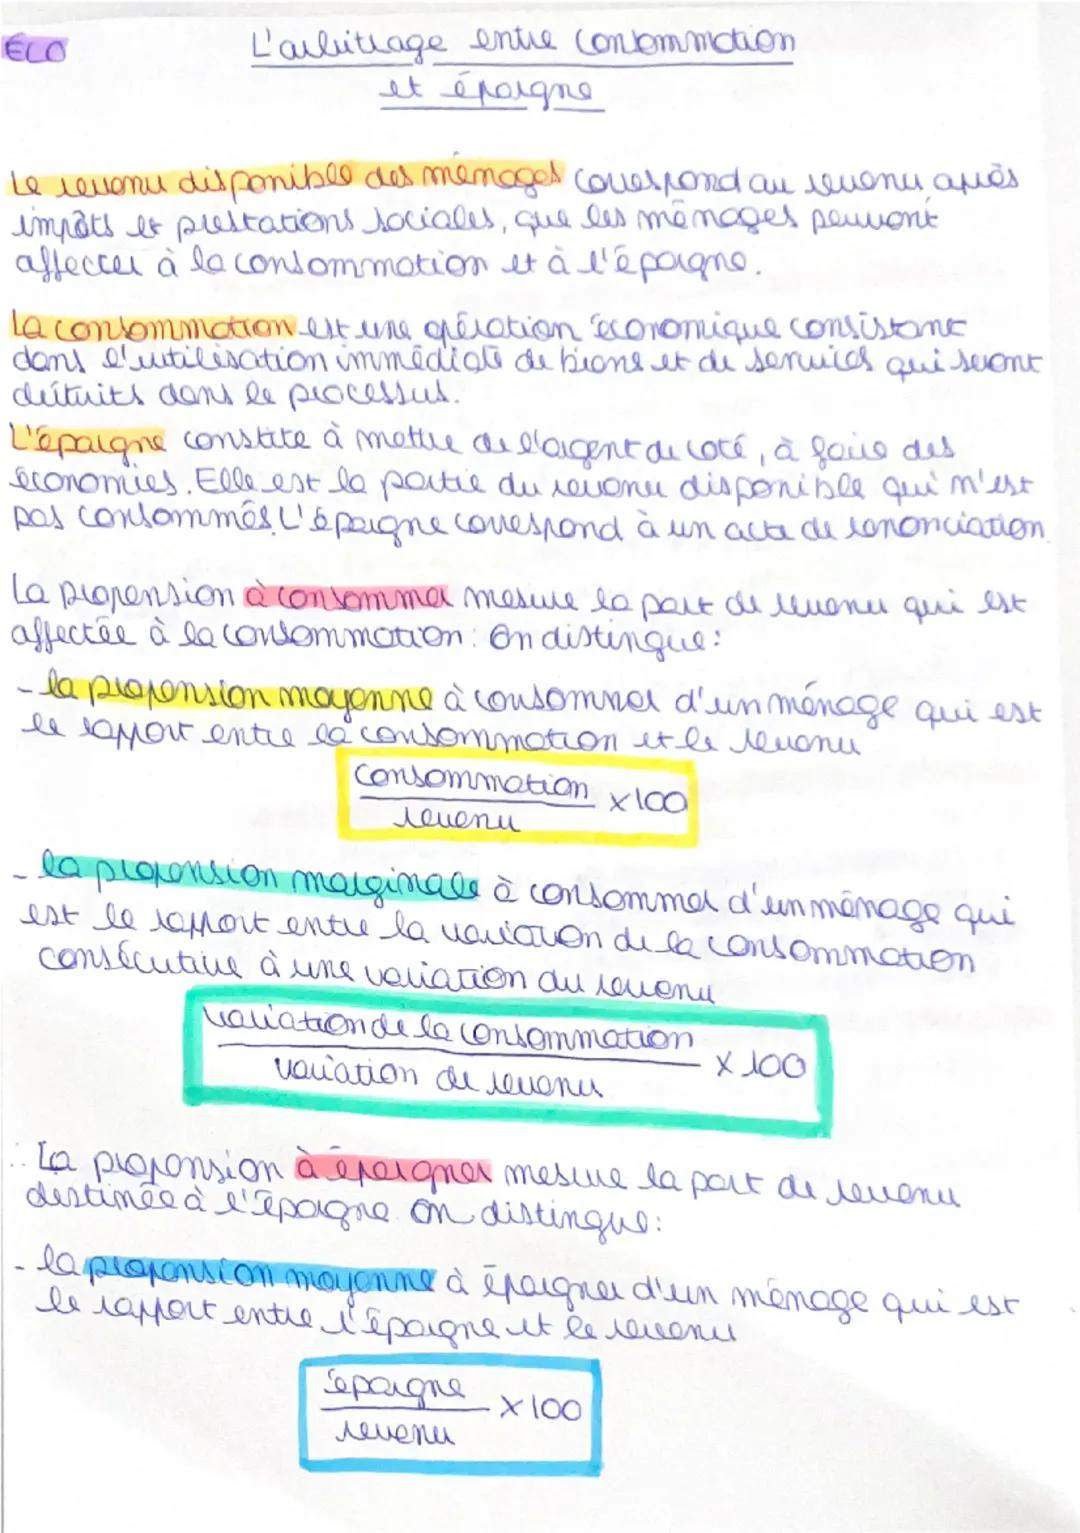 ECO
L'arbitrage entre consommation
et épargne
Le revenu disponible des ménages correspond au revenu après
impôts et prestations sociales, que les ménages peuvent
affecter à la consommation et à l'épargne.
La consommation est une opération économique consistant
dans l'utilisation immédiate de biens et de services qui seront
détruits dans le processus.
L'épargne constite à mettre de l'argent de coté, à faire des
économies. Elle est la partie du revenu disponible qui n'est
pas consommés. L'épargne correspond à un acte de renonciation.
La propension à consommer mesure la part de revenu qui est
affectée à la consommation : On distingue :
- la propension moyenne à consommer d'un ménage qui est
le rapport entre la consommation et le revenu
consommation
x100
revenu
- la propension marginale à consommer d'un ménage qui
est le rapport entre la variation de la consommation
consécutive à une variation du revenu
variation de la consommation
x 100
variation de revenu
La propension à épargner mesure la part de revenu
destinée à l'épargne. On distingue :
- la propension moyenne à épargner d'un ménage qui est
le rapport entre l'épargne et le revenu
épargne
x100
revenu